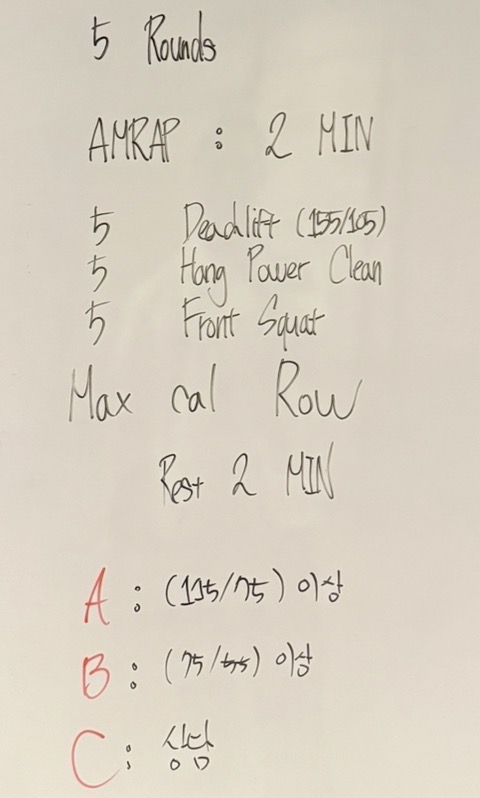 5 Rounds
AMRAP : 2 MIN
5 Deadlift (155/105)
5 Hang Power Clean
5 Front Squat
Max cal Row
Rest 2 MIN
A : (115/75) 이상
B : (75/55) 이상
C : 상담